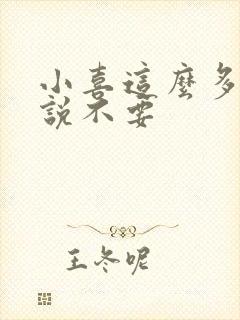 小喜這麼多
說不要
王冬呢